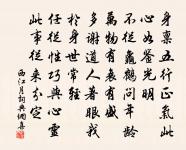 身稟五行正氣此
心如鑒光明
不從龜鶴問年齡
萬物有衰有盛
多謝道人著眼我
於身世常輕
任從性巧與心靈
此事從來分定
西江月詞典網集